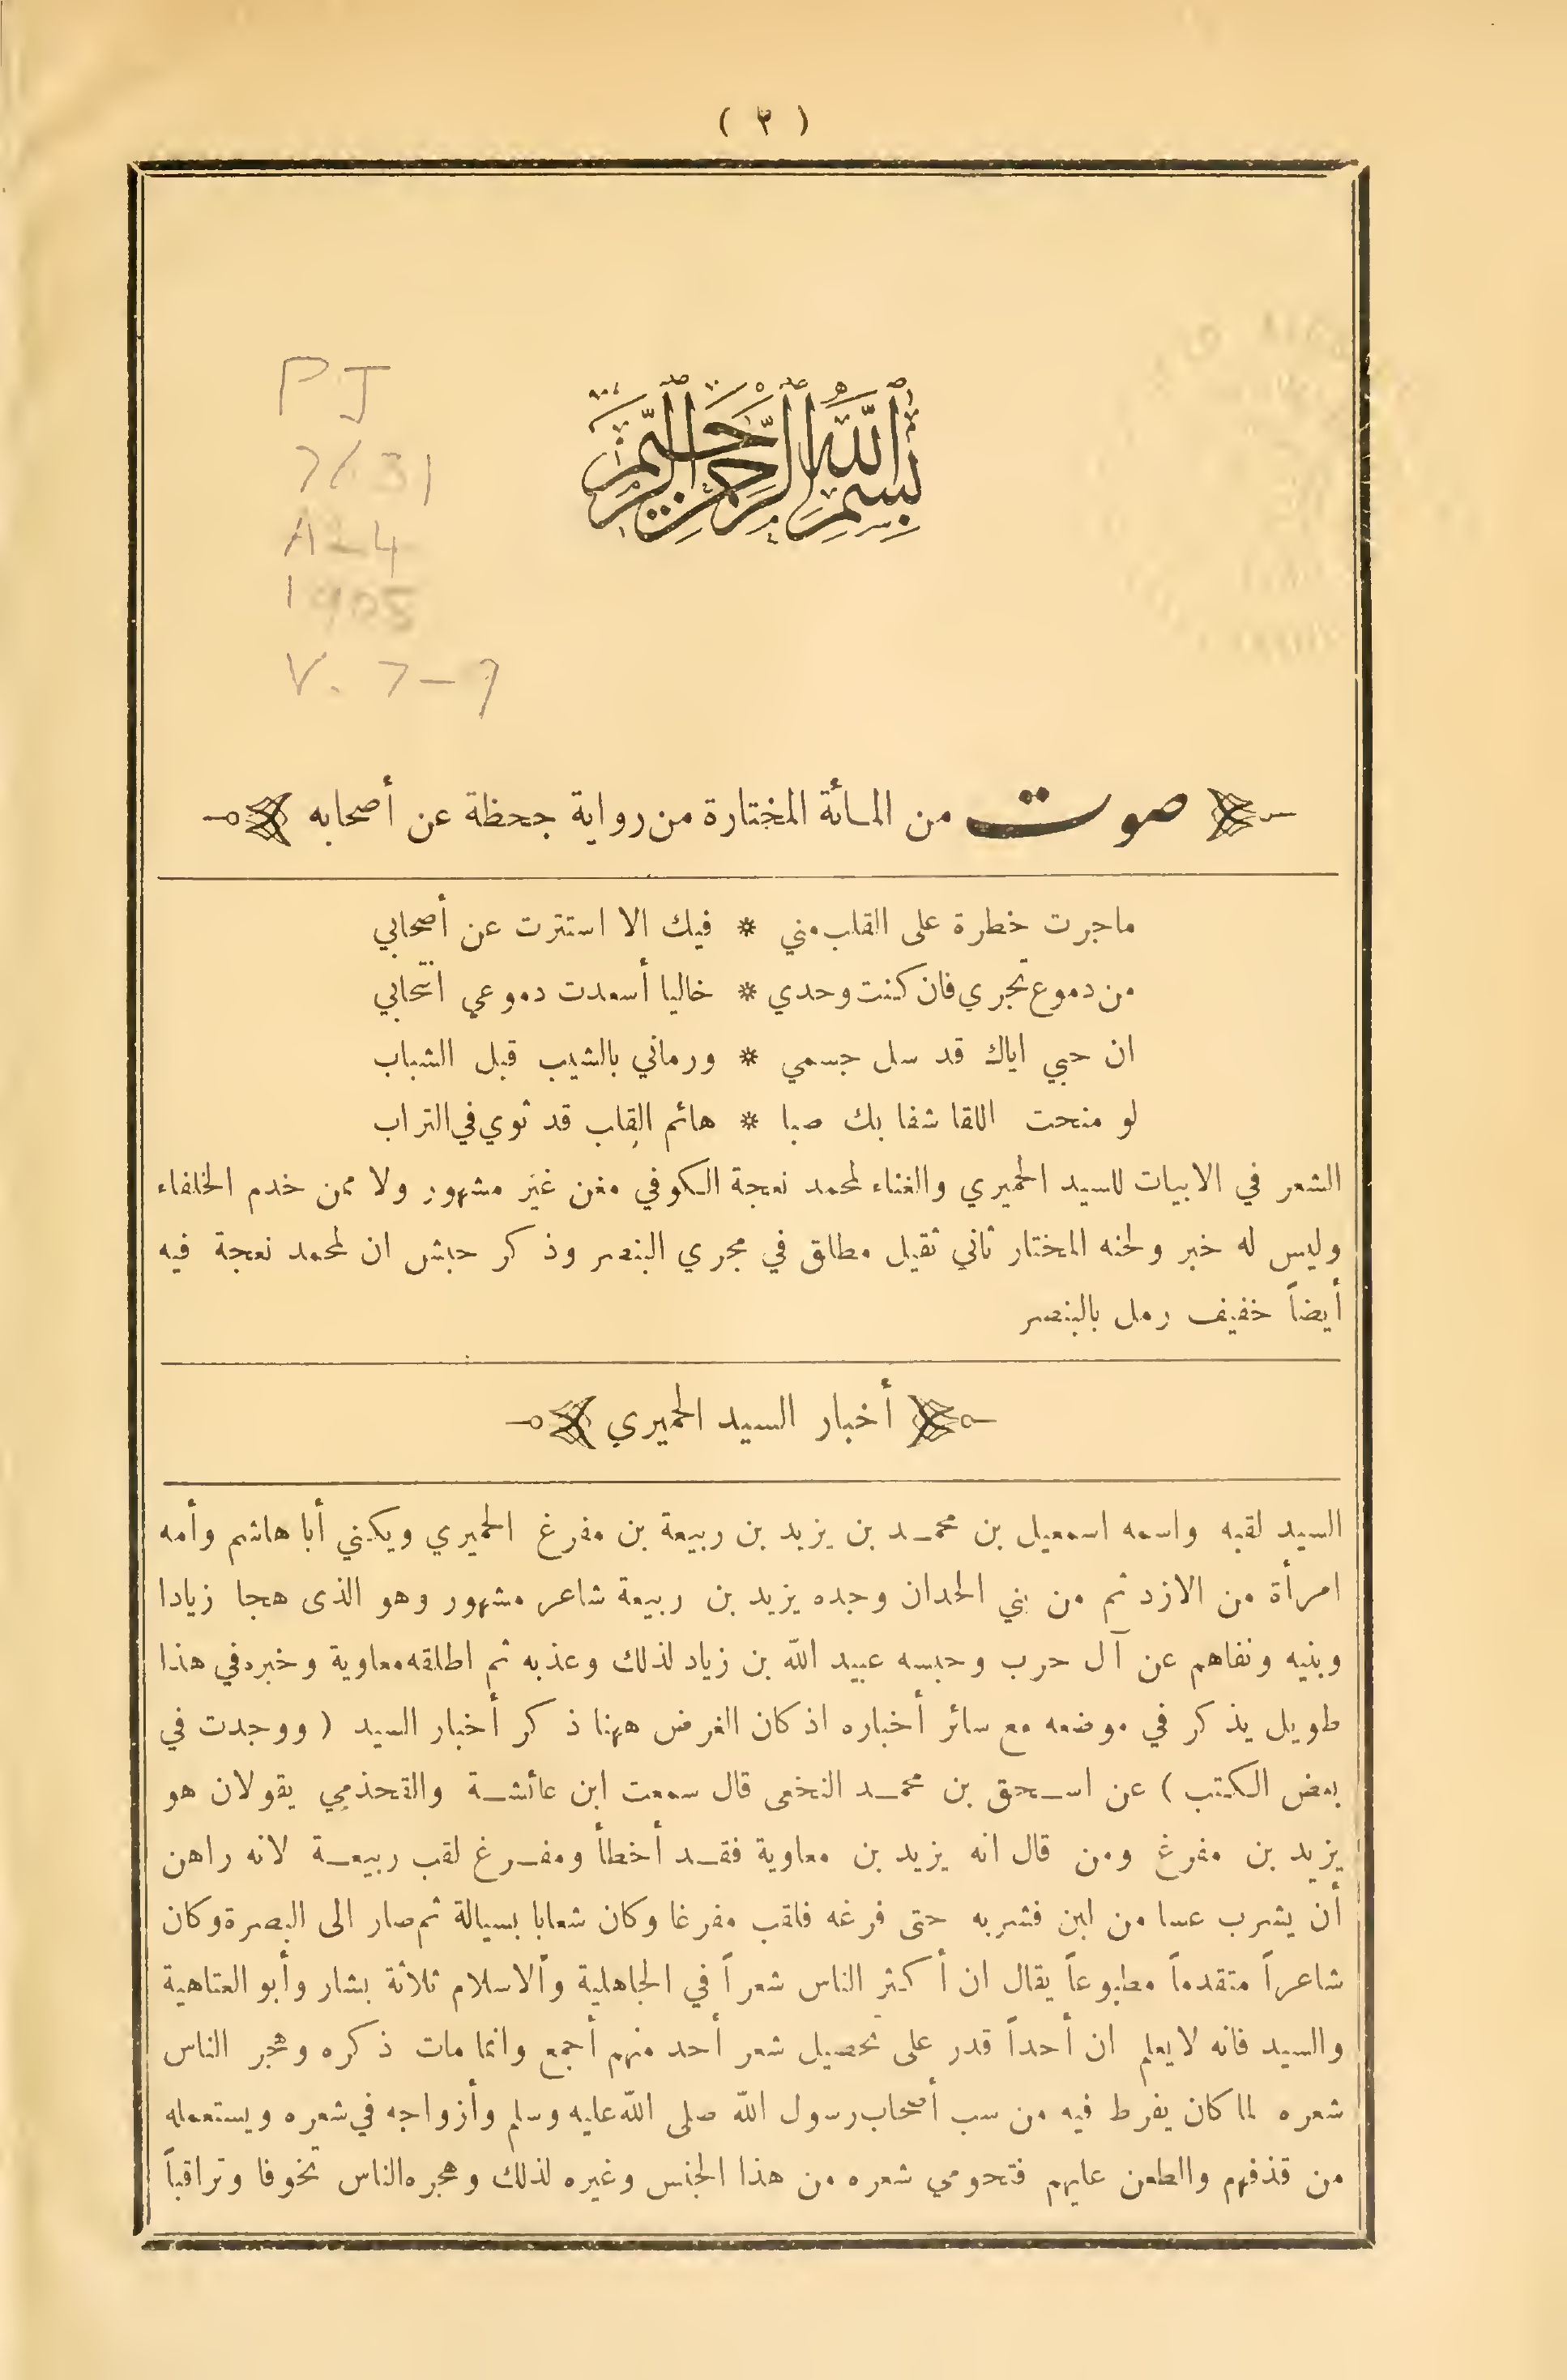 ( ٢ )
PJ
7631
A24
1905
V. 7-9
بسم الله الرحمن الرحيم
صوت من المائة المختارة من رواية جحظة عن أصحابه
ماجرت خطرة على القلب مني * فيك الا استترت عن أصحابي
من دموع تجري فان كنت وحدي * خاليا أسعدت دموعي انتحابي
ان حبي اياك قد سل جسمي * ورماني بالشيب قبل الشباب
لو منحت اللقا شفا بك صبا * هائم القلب قد ثوي في التراب
الشعر في الابيات للسيد الحميري والغناء لمحمد نعجة الكوفي مغن غير مشهور ولا ممن خدم الخلفاء
وليس له خبر ولحنه المختار ثاني ثقيل مطلق في مجري البنصر وذكر حبش ان لمحمد نعجة فيه
أيضاً خفيف رمل بالبنصر
أخبار السيد الحميري
السيد لقبه واسمه اسمعيل بن محمد بن يزيد بن ربيعة بن مفرغ الحميري ويكني أبا هاشم وأمه
امرأة من الازد ثم من بني الحدان وجده يزيد بن ربيعة شاعر مشهور وهو الذى هجا زيادا
وبنيه ونفاهم عن آل حرب وحبسه عبيد الله بن زياد لذلك وعذبه ثم اطلقه معاوية وخبره في هذا
طويل يذكر في موضعه مع سائر أخباره اذ كان الغرض ههنا ذكر أخبار السيد ( ووجدت في
بعض الكتب ) عن اسحق بن محمد النخعى قال سمعت ابن عائشة والقحذمي يقولان هو
يزيد بن مفرغ ومن قال انه يزيد بن معاوية فقد أخطأ ومفرغ لقب ربيعة لانه راهن
أن يشرب عسا من لبن فشربه حتى فرغه فلقب مفرغا وكان شعابا بسيالة ثم صار الى البصرة وكان
شاعراً متقدماً مطبوعاً يقال ان أكثر الناس شعراً في الجاهلية والاسلام ثلاثة بشار وأبو العتاهية
والسيد فانه لا يعلم ان أحداً قدر على تحصيل شعر أحد منهم أجمع وانما مات ذكره وهجر الناس
شعره لما كان يفرط فيه من سب أصحاب رسول الله صلى الله عليه وسلم وأزواجه في شعره ويستعمله
من قذفهم والطعن عليهم فتحومي شعره من هذا الجنس وغيره لذلك وهجره الناس تخوفا وتراقباً